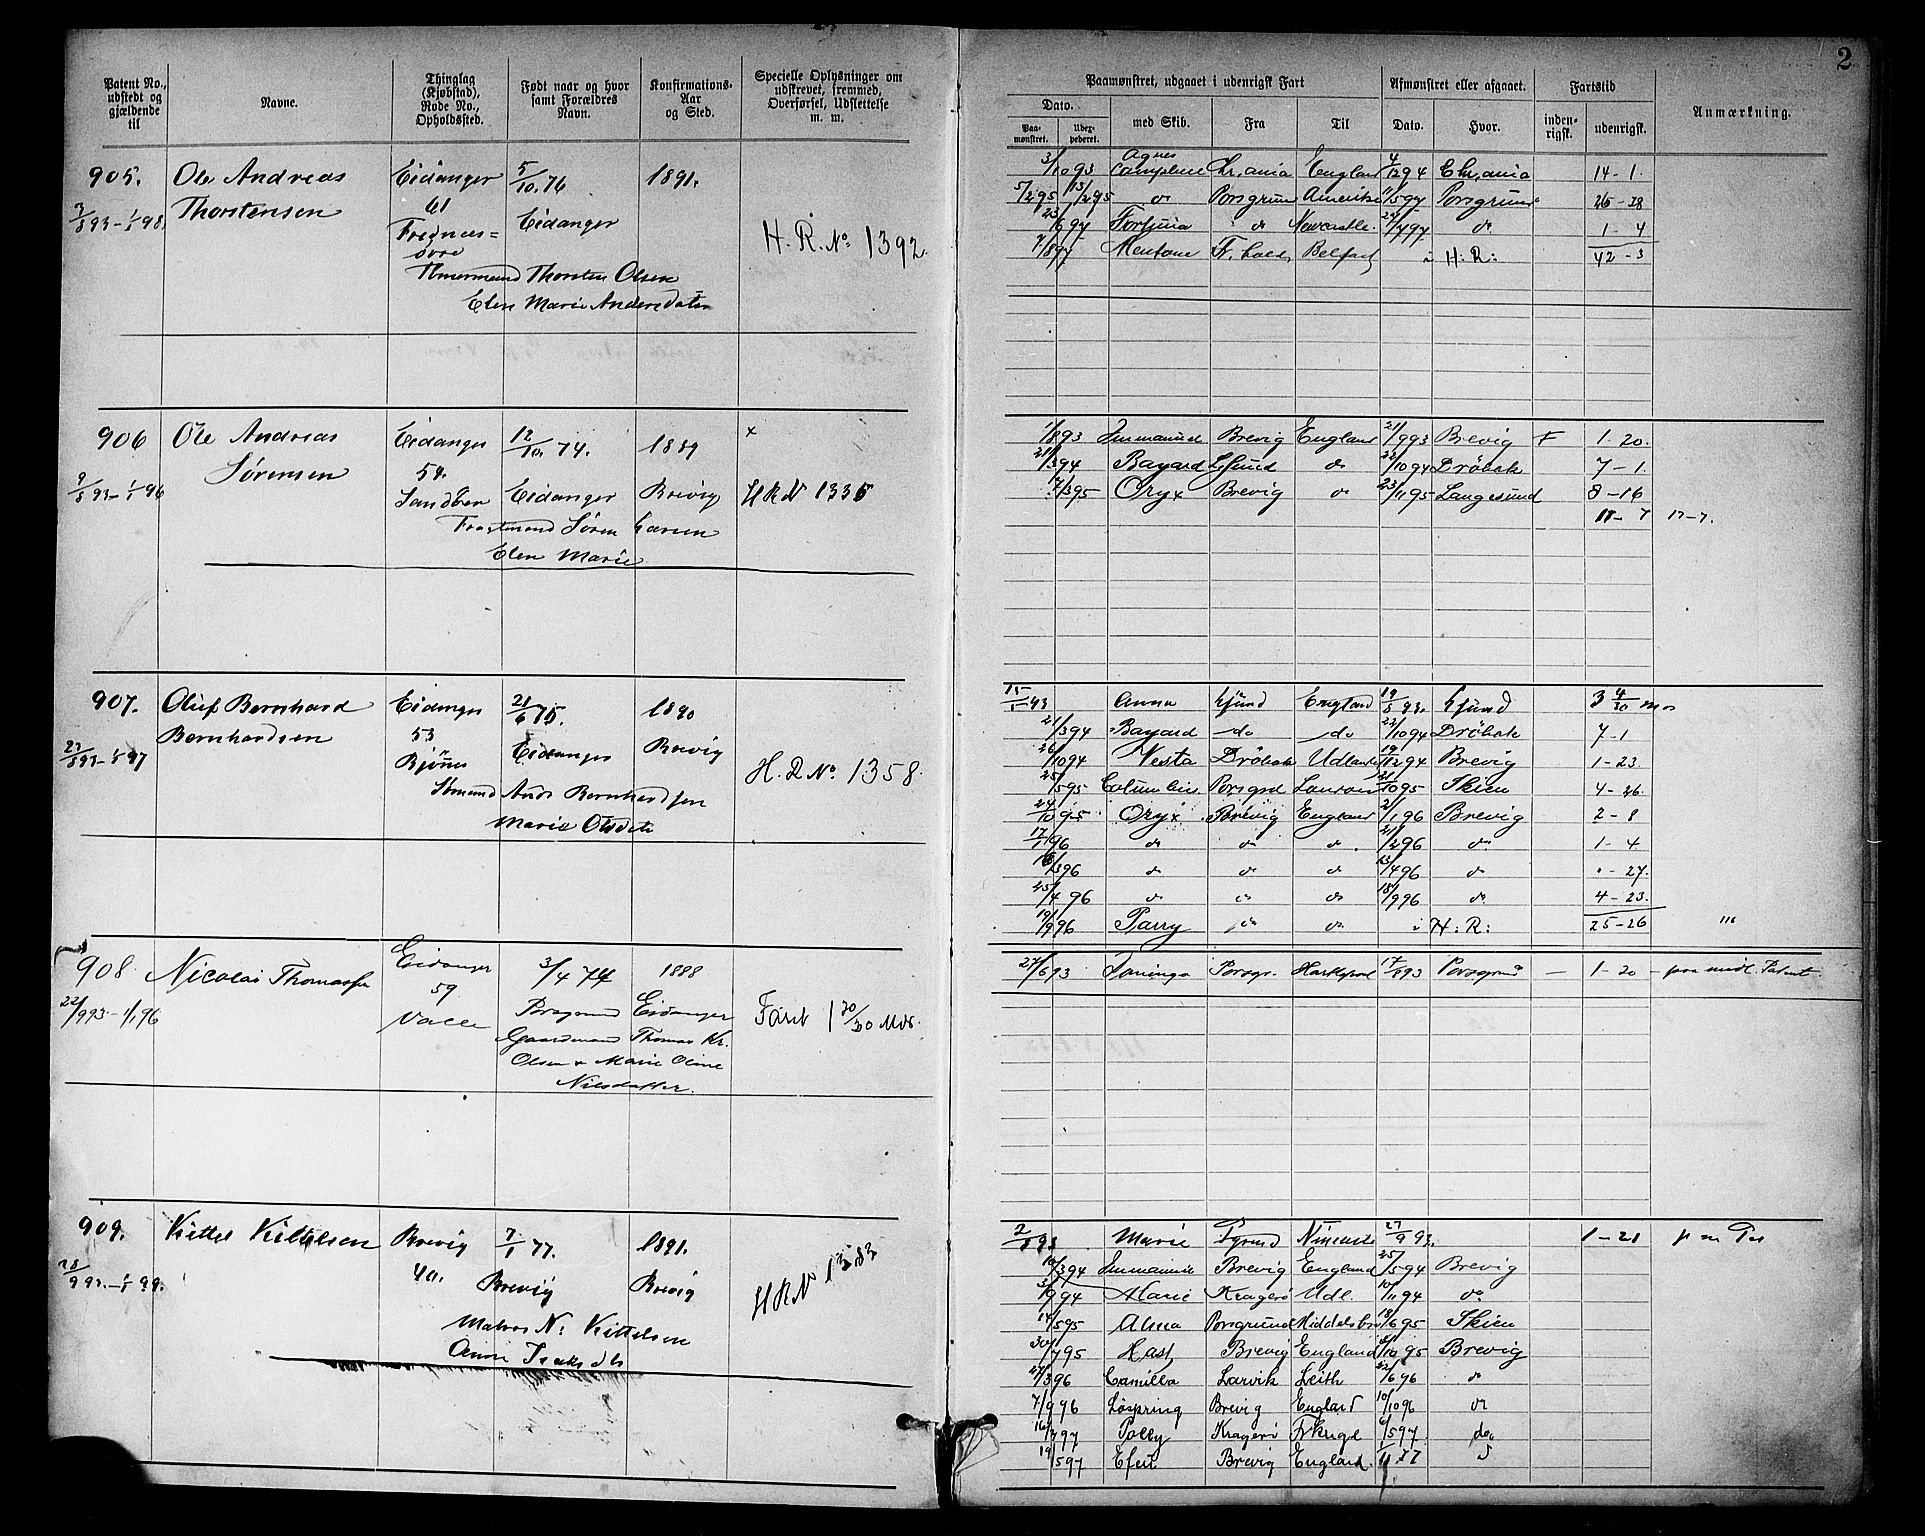 2
Patent No., udstedt og gjældende til
Navne.
Thinglag (Kjøbstad), Rode No., Opholdssted.
Født naar og hvor samt Forældres Navn.
Konfirmations-Aar og Sted.
Specielle Oplysninger om udskrevet, fremmed, Overførsel, Udslettelse m. m.
Paamønstret, udgaaet i udenrigsk Fart
Dato.
Paamønstret.
med Skib.
Fra
Til
Afmønstret eller afgaaet.
Dato.
Hvor.
Fartstid
indenrigsk.
udenrigsk.
Anmærkning.
905. Ole Andreas Eidanger 5/10.76 1891.
Thorstensen 61 Eidanger
H. R. No 1392.
Thorsten Olsen
Elen Marie Andersdatter
3/10 93 Agnes Campbell Chr,ania England 4/12 94 Chr,ania 14-1.
5/2 95 13/2 95 do Porsgrund Amerika Porsgrund 26-28
23/6 97 Fortuna do Newcastle 24/7 97 do 1-4
7/8 97 Mentone Fr.hald Belfast i H: R: 42-3
906 Ole Andreas Eidanger 12/10. 74. 1889 x
Sørensen 54.
9/8 93-1/1 96 Eidanger Brevig H R N 1335
Søren Larsen
Elen Marie
1/8 93 Immanuel Brevig England 21/9 93 Brevig F 1-20.
21/3 94 Bayard Lsund do 22/10 94 Drøbak 7-1
7/3 95 Oryx Brevig do 23/11 95 Langesund 8-16
17-7 17-7.
907. Oluf Bernhard Eidanger 21/6 75. 1890
Bernhardsen 53 Eidanger Brevig
Bjønnes H. R No 1358.
Bernhardsen
Marie Olsdt
15/1 93 Anna Lsund England 19/8 93. Lsund 3 4/30 mos
21/3 94 Bayard do do 22/10 94 Drøbak 7-1
26/10 94 Vesta Drøbak Udlandet 19/12 94 Brevig 1-23.
25/5 95 Columbus Porsgrd 21/10 95 Skien 4-26.
24/10 95 Oryx Brevig England 2/1 96 Brevig 2-8
17/1 96 do do do 21/2 96 do 1-4
16/3 96 do do do 13/4 96 do . -27.
25/4 96 do do do 18/9 96 do 4-23.
19/9 96 Parry do do i H: R: 25-26 "'
908. Nicolai Thomassen Eidanger 3/4 74 1888
59 Eidanger
22/9 93-1/1 96 Valle Farit 1 20/30 Mdr.
Gaardmand Thomas Kr.
Olsen & Marie Oline
Nilsdatter.
27/6 93 Porsgr. 17/8 93 Porsgrund — 1-20 - paa midl. Patent
909. Kittel Kittelsen Brevig 7/1 77. 1891.
28/9 93.-1/1 99. 40. Brevig Brevig H R N 1383
Matros N: Kittelsen
Anne
2/8 93 Marie 27/9 93. 1-21
10/3 94 Immanuel Brevig England 25/5 94 Brevig
3/9 94 Marie Kragerø Udl. 10/11 94 do
14/5 95 Alma Porsgrund Middelsbro 18/6 95 Skien
30/7 95 Hast Brevig England 10 95 Brevig
27/3 96 Camilla Larvik Leith 22/6 96 do
7/9 96 Løspring Brevig England 10/10 96 do
Polly Kragerø 5 97 do
19/5 97 Brevig England